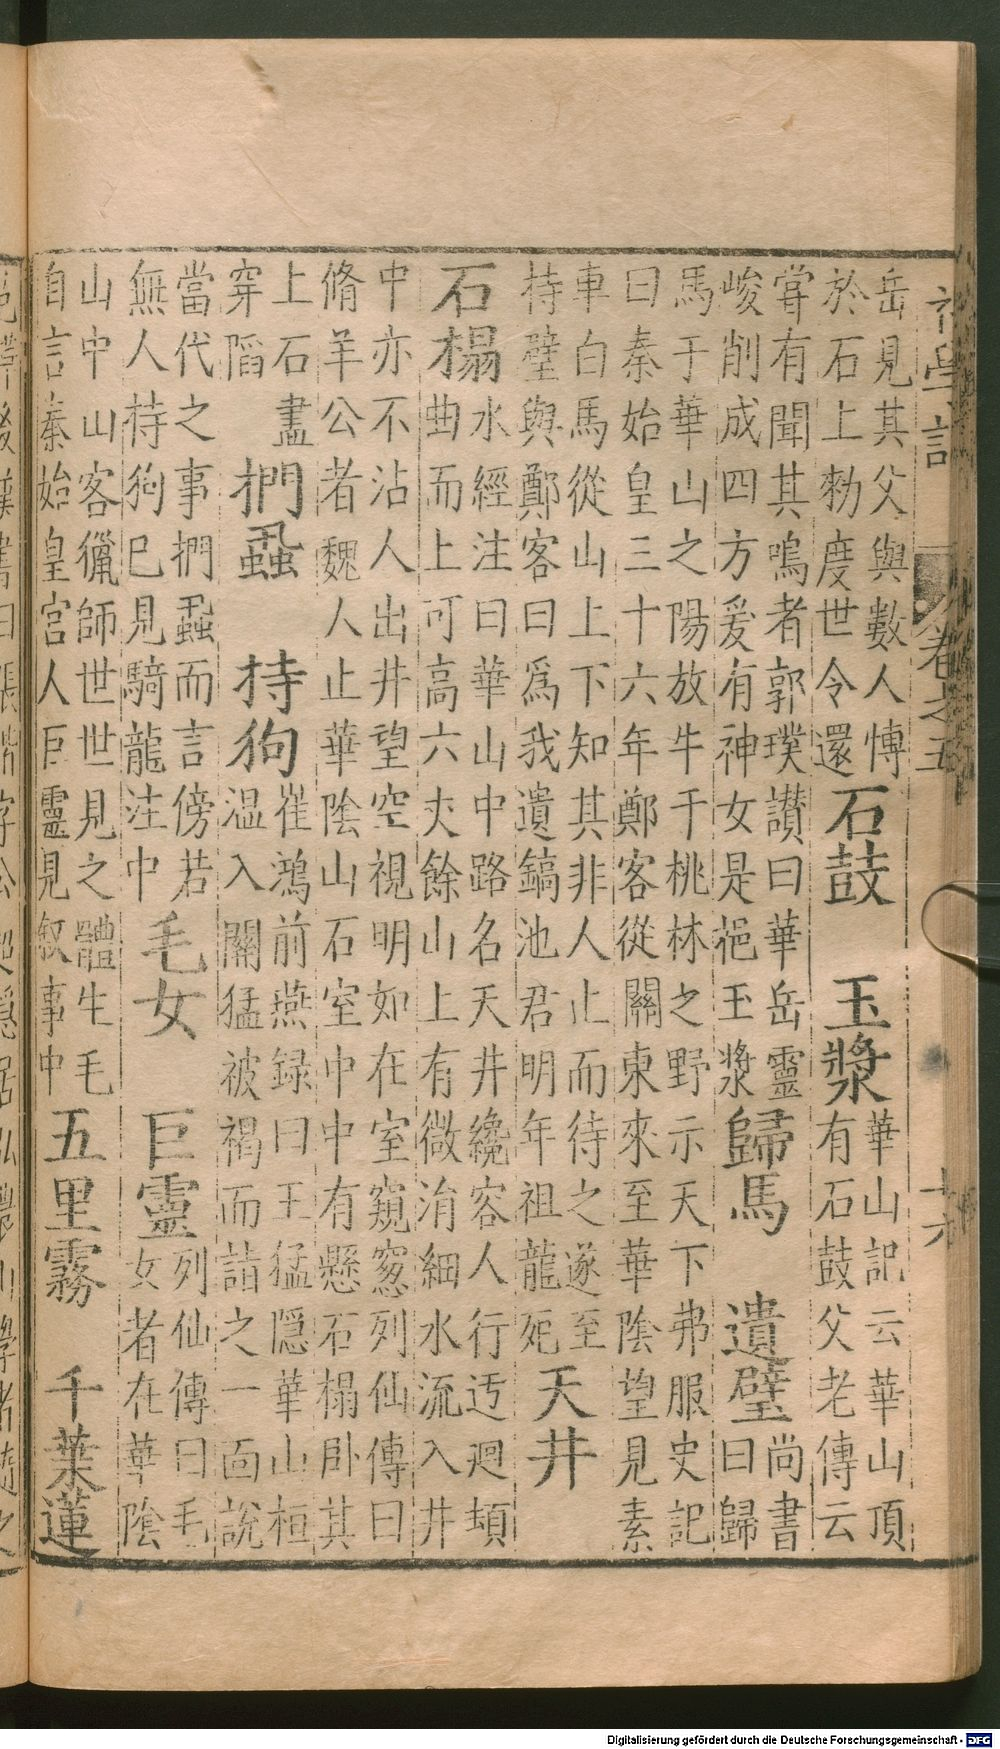 初學記 卷之五 十六
岳見其父與數人博
於石上勑度世令還
石鼓 玉漿
華山記云華山頂
有石鼓父老傳云
甞有聞其鳴者郭璞讃曰華岳靈
峻削成四方爰有神女是挹玉漿
歸馬 遺璧
尚書
曰歸
馬于華山之陽放牛于桃林之野示天下弗服史記
曰秦始皇三十六年鄭客從關東來至華陰望見素
車白馬從山上下知其非人止而待之遂至
持璧與鄭客曰爲我遺鎬池君明年祖龍死
天井
石榻
水經注曰華山中路名天井纔容人行迂迴頓
曲而上可高六丈餘山上有微涓細水流入井
中亦不沾人出井望空視明如在室窺窓列仙傳曰
脩羊公者魏人止華陰山石室中中有懸石榻卧其
上石盡
穿䧟
捫蝨 持狗
崔鴻前燕録曰王猛隱華山桓
温入關猛被褐而詰之一面說
當代之事捫蝨而言傍若
無人持狗巳見騎龍注中
毛女 巨靈
列仙傳曰毛
女者在華陰
山中山客獵師世世見之體生毛
自言秦始皇宮人巨靈見叙事中
五里霧 千葉蓮
Digitalisierung gefördert durch die Deutsche Forschungsgemeinschaft - DFG